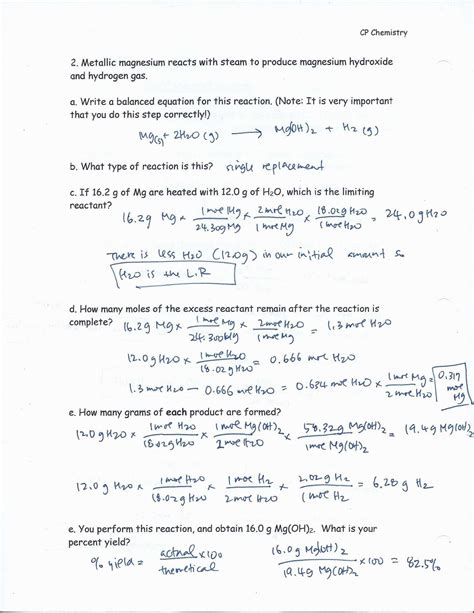 CP Chemistry
2. Metallic magnesium reacts with steam to produce magnesium hydroxide
and hydrogen gas.
a. Write a balanced equation for this reaction. (Note: It is very important
that you do this step correctly!)
Mg(s) + 2H2O (g) → Mg(OH)2 + H2 (g)
b. What type of reaction is this? single replacement
c. If 16.2 g of Mg are heated with 12.0 g of H2O, which is the limiting
reactant?
16.2g Mg × 1 mol Mg / 24.309 Mg × 2 mol H2O / 1 mol Mg × 18.02g H2O / 1 mol H2O = 24.0 g H2O
There is less H2O (12.0g) in our initial amount so
H2O is the L.R
d. How many moles of the excess reactant remain after the reaction is
complete? 16.2g Mg × 1 mol Mg / 24.30g Mg × 2 mol H2O / 1 mol Mg = 1.3 mol H2O
12.0g H2O × 1 mol H2O / 18.02g H2O = 0.666 mol H2O
1.3 mol H2O - 0.666 mol H2O = 0.634 mol H2O × 1 mol Mg / 2 mol H2O = 0.317 mol Mg
e. How many grams of each product are formed?
12.0g H2O × 1 mol H2O / 18.02g H2O × 1 mol Mg(OH)2 / 2 mol H2O × 58.32g Mg(OH)2 / 1 mol Mg(OH)2 = 19.4g Mg(OH)2
12.0g H2O × 1 mol H2O / 18.02g H2O × 1 mol H2 / 2 mol H2O × 2.02g H2 / 1 mol H2 = 6.28g H2
e. You perform this reaction, and obtain 16.0 g Mg(OH)2. What is your
percent yield?
% yield = actual / theoretical × 100
16.0g Mg(OH)2 / 19.4g Mg(OH)2 × 100 = 82.5%